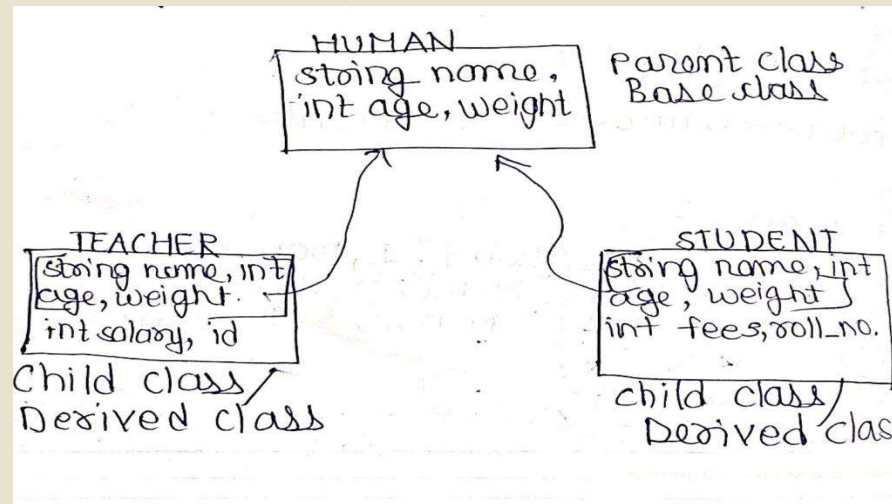 HUMAN
string name,
int age, weight
Parent class
Base class
TEACHER
string name, int
age, weight.
int salary, id
Child class/
Derived class
STUDENT
string name, int
age, weight
int fees, roll_no.
child class/
Derived clas